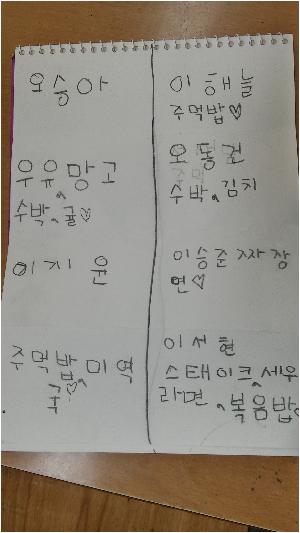 오승아
우유, 망고
수박, 귤♡
이지윤
주먹밥, 미역
국♡
이해늘
주먹밥♡
오동권
수박, 김치
이승준 짜장
면♡
이서현
스테이크, 세우
라면, 볶음밥♡